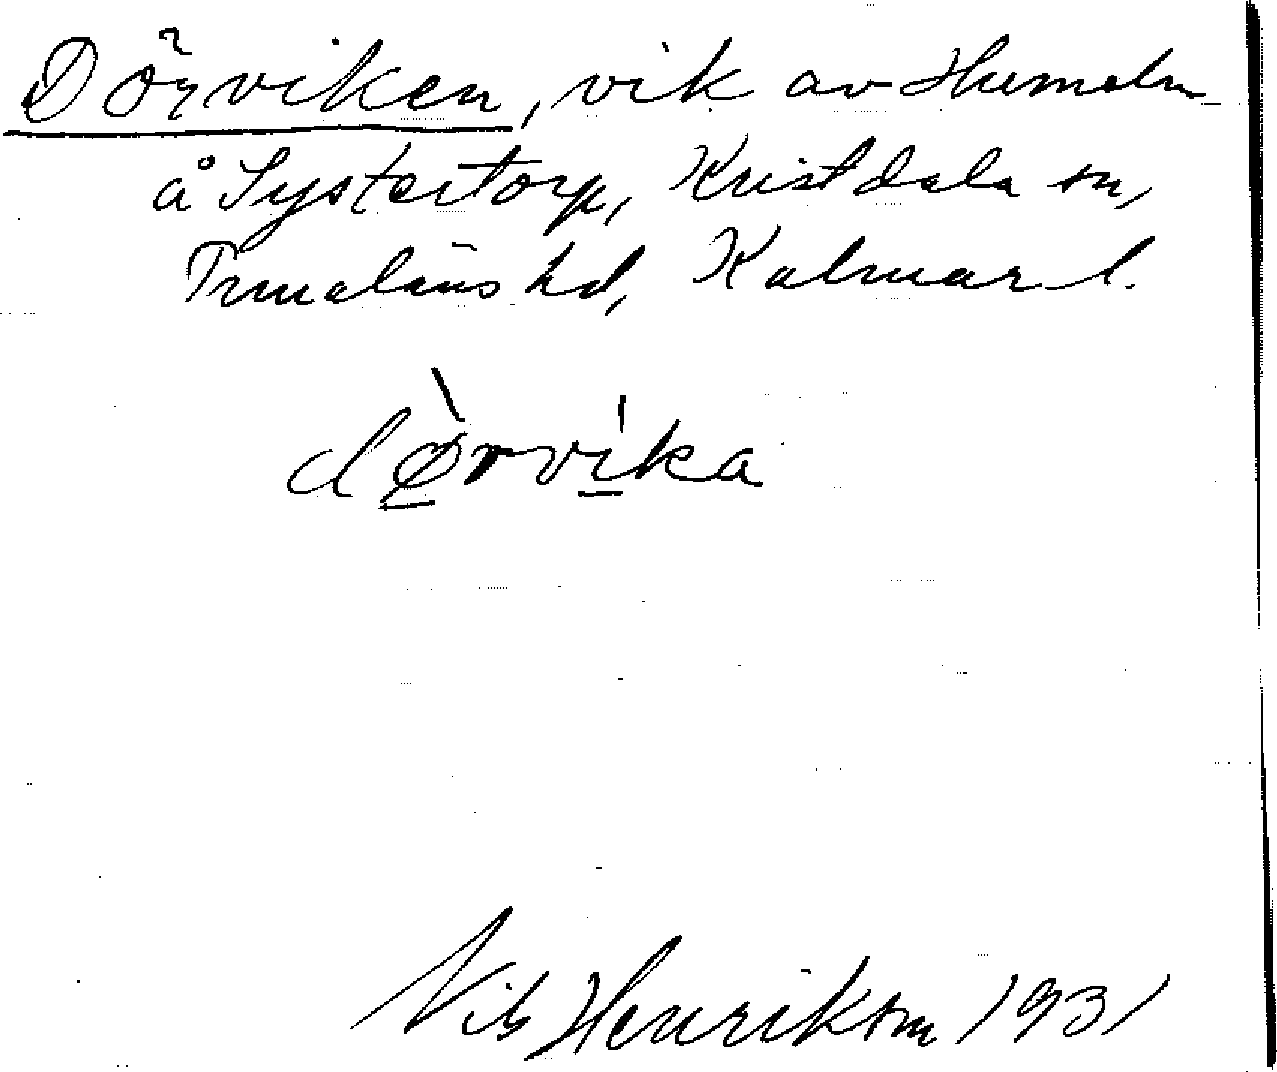 Dörviken, vik av Humeln
å Systertorp, Kristdala sn,
Tunaläns hd, Kalmar l.
dø̀rvika
Nils Henrikson 1931